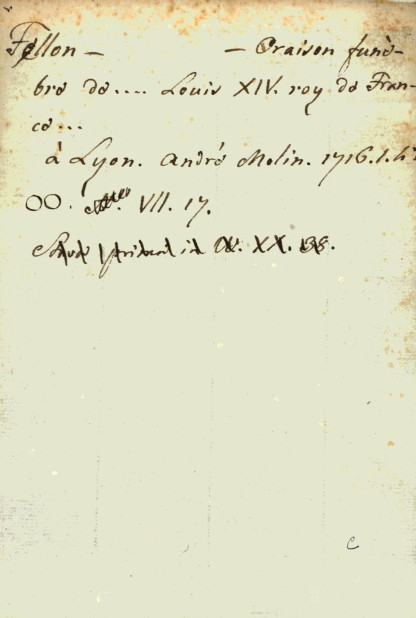 Fellon — — Oraison funè-
bre de.... Louis XIV. roy de Fran-
ce...
à Lyon. André Molin. 1716. 1.
OO. VII. 17.
XX. 38.
C